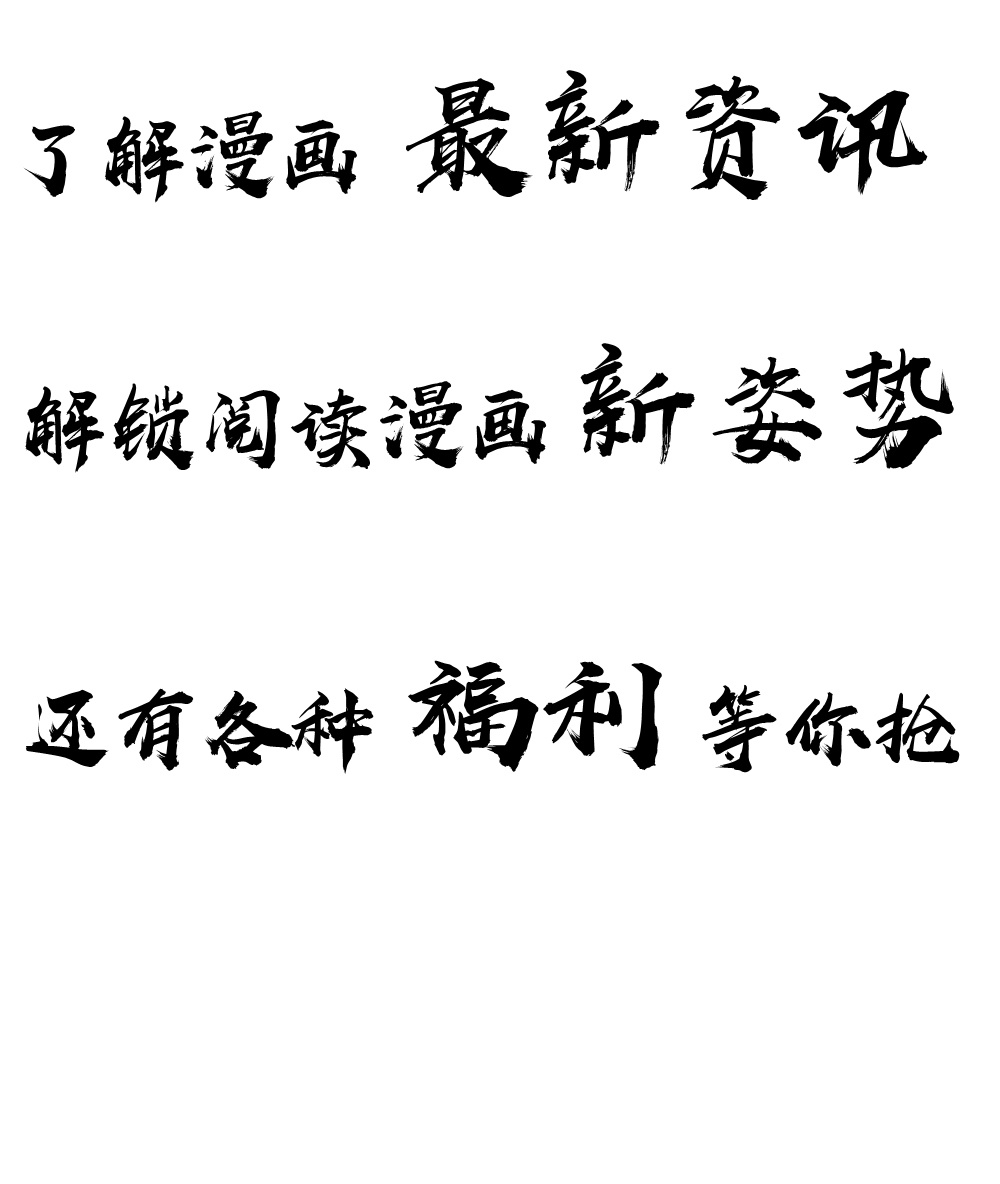 了解漫画 最新资讯
解锁阅读漫画新姿势
还有各种 福利 等你抢